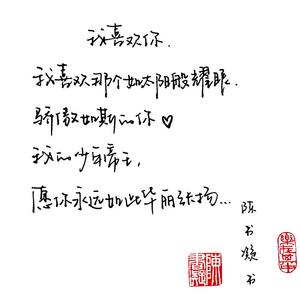 我喜欢你.
我喜欢那个如太阳般耀眼.
骄傲如斯的你♥
我的少年帝王,
愿你永远如此华丽张扬...
陈书焕书